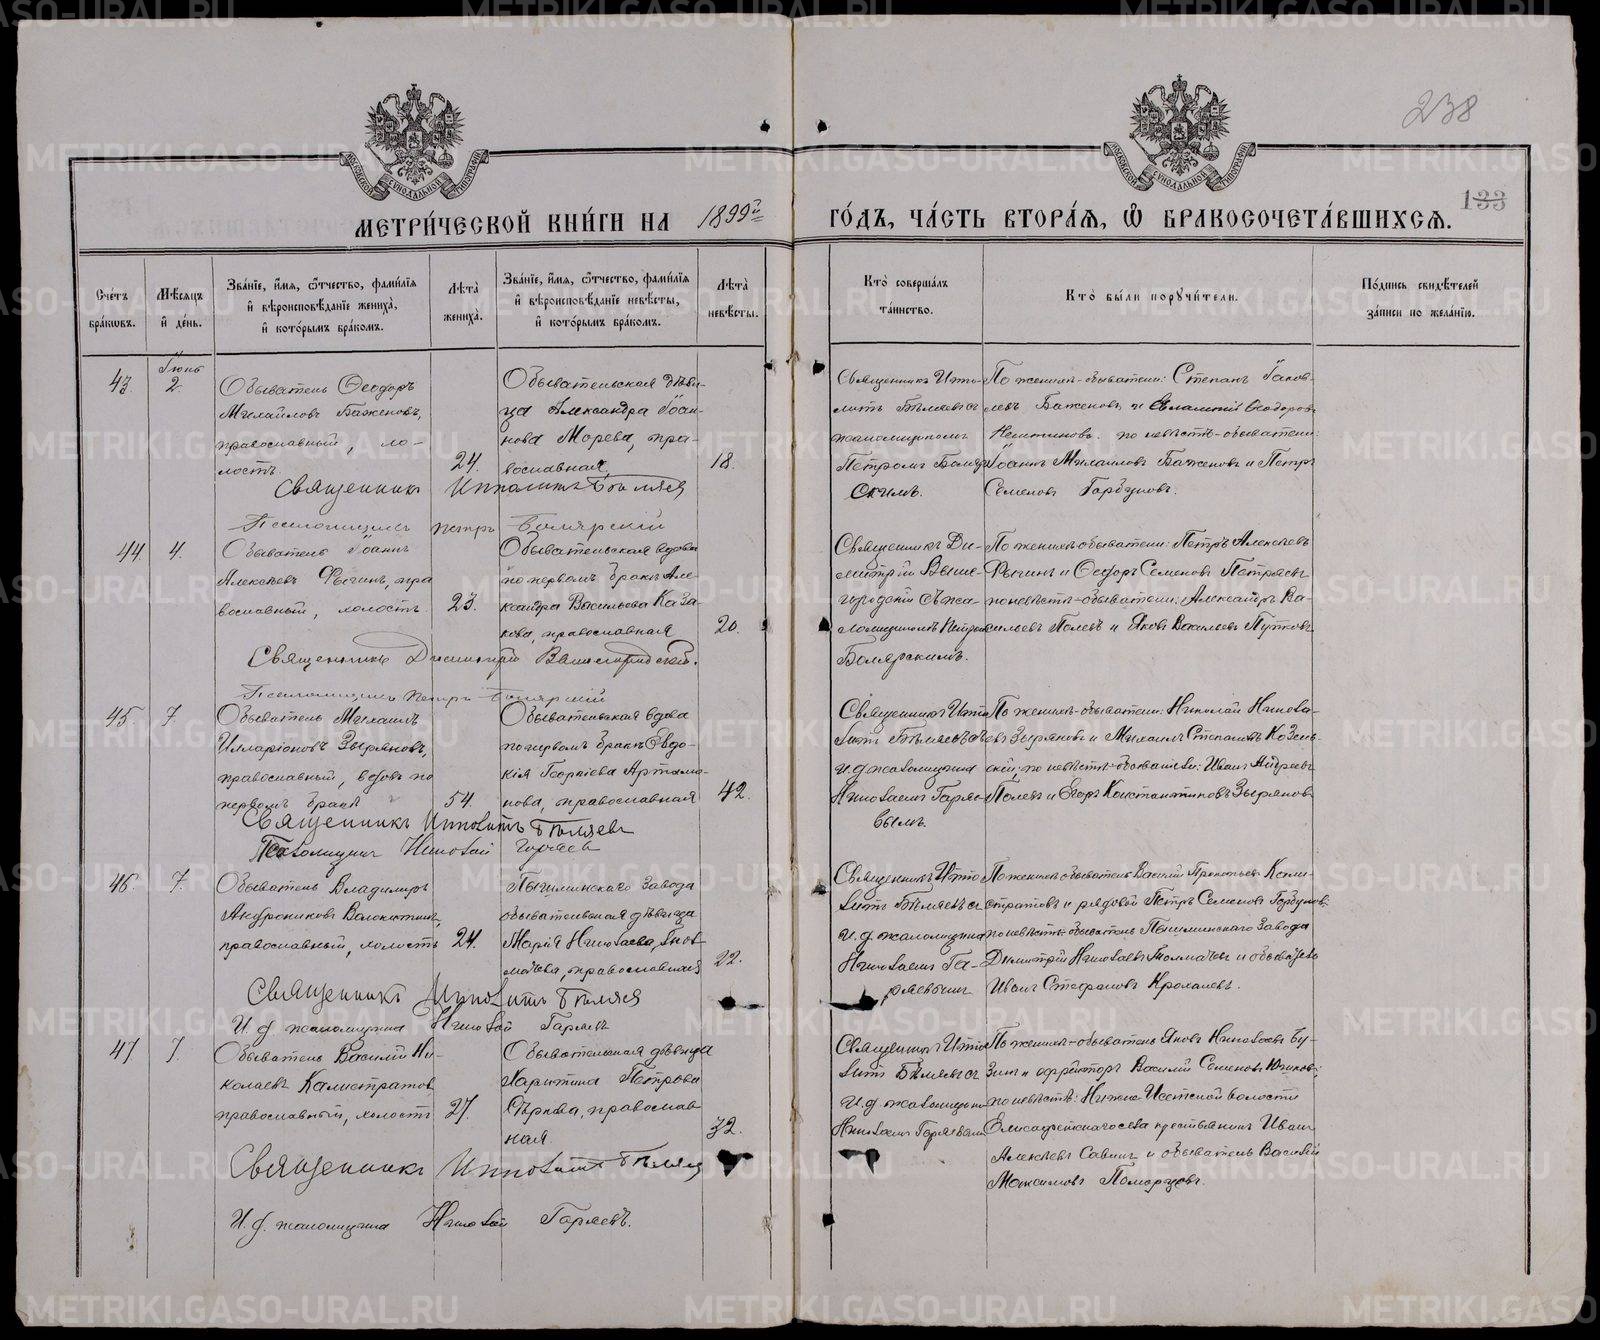 238
133
МОСКОВСКОЙ СѴНОДАЛЬНОЙ ТИПОГРАФІИ
МОСКОВСКОЙ СѴНОДАЛЬНОЙ ТИПОГРАФІИ
МЕТРИ́ЧЕСКОЙ КНИ́ГИ НА 1899й ГО́ДЪ, ЧА́СТЬ ВТОРА́Я, Ѿ БРАКОСОЧЕТА́ВШИХСЯ.
Сче́тъ
бра́кωвъ.
Мѣ́сяцъ
и҆ де́нь.
Зва́нїе, и҆́мя, ѻ҆́тчество, фами́лїя
и҆ вѣроисповѣ́данїе жениха̀,
и҆ кото́рымъ бра́комъ.
Лѣ́та
жениха̀.
Зва́нїе, и҆́мя, ѻ҆́тчество, фами́лїя
и҆ вѣроисповѣ́данїе невѣ́сты,
и҆ кото́рымъ бра́комъ.
Лѣ́та
невѣ́сты.
Кто̀ соверша́лъ
та́инство.
Кто̀ бы́ли порꙋчи́тели.
По́дпись свидѣ́телей
за́писи по жела́нїю.
43.
Іюнь
2.
Обыватель Ѳеодоръ
Михайловъ Баженовъ,
православный, хо-
лостъ.
24.
Обывательская дѣви-
ца Александра Іоан-
нова Морева, пра-
вославная,
18.
Священникъ Иппо-
литъ Бѣляевъ съ
псаломщикомъ
Петромъ Бояр-
скимъ.
По женихѣ-обыватели: Степанъ Іаков-
левъ Баженовъ и Ѳеодоров
по невѣстѣ-обыватели:
Іоаннъ Михаиловъ Баженовъ и Петръ
Семеновъ Горбуновъ.
Священникъ Ипполитъ Бѣляевъ
Псаломщикъ Петръ Боярскій
44
4.
Обыватель Іоаннъ
Алексѣевъ Фыгинъ, пра
вославный, холостъ.
23.
Обывательская вдова
по первомъ бракѣ Але-
ксандра Васильева Каза-
кова, православная
20.
Священникъ Ди-
митрій Выше-
городскій съ пса-
ломщикомъ Петромъ
Боярскимъ.
По женихѣ обыватели: Петръ Алексѣевъ
Фыгинъ и Ѳеодоръ Семеновъ Петряевъ
по невѣстѣ-обыватели: Александръ Ва-
сильевъ Полевъ и Яковъ Васильевъ Путковъ
Священникъ Димитрій Вышегородскій.
Псаломщикъ Петръ Боярскій
45.
7.
Обыватель Михаилъ
Илларіоновъ Зыряновъ,
православный, вдовъ по
первомъ бракѣ
54.
Обывательская вдова
по первомъ бракѣ Евдо-
кія Георгіева Артамо-
нова, православная
42.
Священникъ Иппо
литъ Бѣляевъ съ
и. д. псаломщика
Николаемъ Гаряе-
вымъ.
По женихѣ-обыватели: Николай Никола-
евъ Зыряновъ и Михаилъ Степановъ Козель-
скій; по невѣстѣ-обыватели: Иванъ Андреевъ
Полевъ и Егоръ Константиновъ Зыряновъ
Священникъ Ипполитъ Бѣляевъ
Псаломщикъ Николай Гаряевъ
46.
7.
Обыватель Владимиръ
Андрониковъ Волокитинъ,
православный, холостъ
24.
Пышминскаго завода
обывательская дѣвица
Марія Николаева Тол-
мачева, православная
22.
Священникъ Иппо
литъ Бѣляевъ съ
и. д. псаломщика
Николаемъ Га-
ряевымъ
По женихѣ обыватель Василій Прокопьевъ Кали-
стратовъ и рядовой Петръ Семеновъ Горбуновъ.
по невѣстѣ-обыватель Пышминскаго завода
Димитрій Николаевъ Толмачевъ и обыватель
Иванъ Стефановъ Кропачевъ.
Священникъ Ипполитъ Бѣляевъ
И. д. псаломщика Николай Гаряевъ
47
7.
Обыватель Василій Ни-
колаевъ Калистратовъ
православный, холостъ
27.
Обывательская дѣвица
Харитина Петрова
Сѣркова, православ
ная.
32.
Священникъ Иппо
литъ Бѣляевъ съ
и. д. псаломщика
Николаемъ Гаряевымъ
По женихѣ-обыватель Яковъ Николаевъ Бу-
зинъ и ефрейторъ Василій Семеновъ
по невѣстѣ: Нижне Исетской волости
Елисаветскаго села крестьянинъ Иванъ
Алексѣевъ Савинъ и обыватель Василій
Максимовъ Поморцевъ.
Священникъ Ипполитъ Бѣляевъ
И. д. псаломщика Николай Гаряевъ.
METRIKI.GASO-URAL.RU